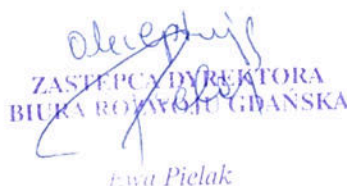 akceptuję
ZASTĘPCA DYREKTORA
BIURA ROZWOJU GDAŃSKA
Ewa Pielak